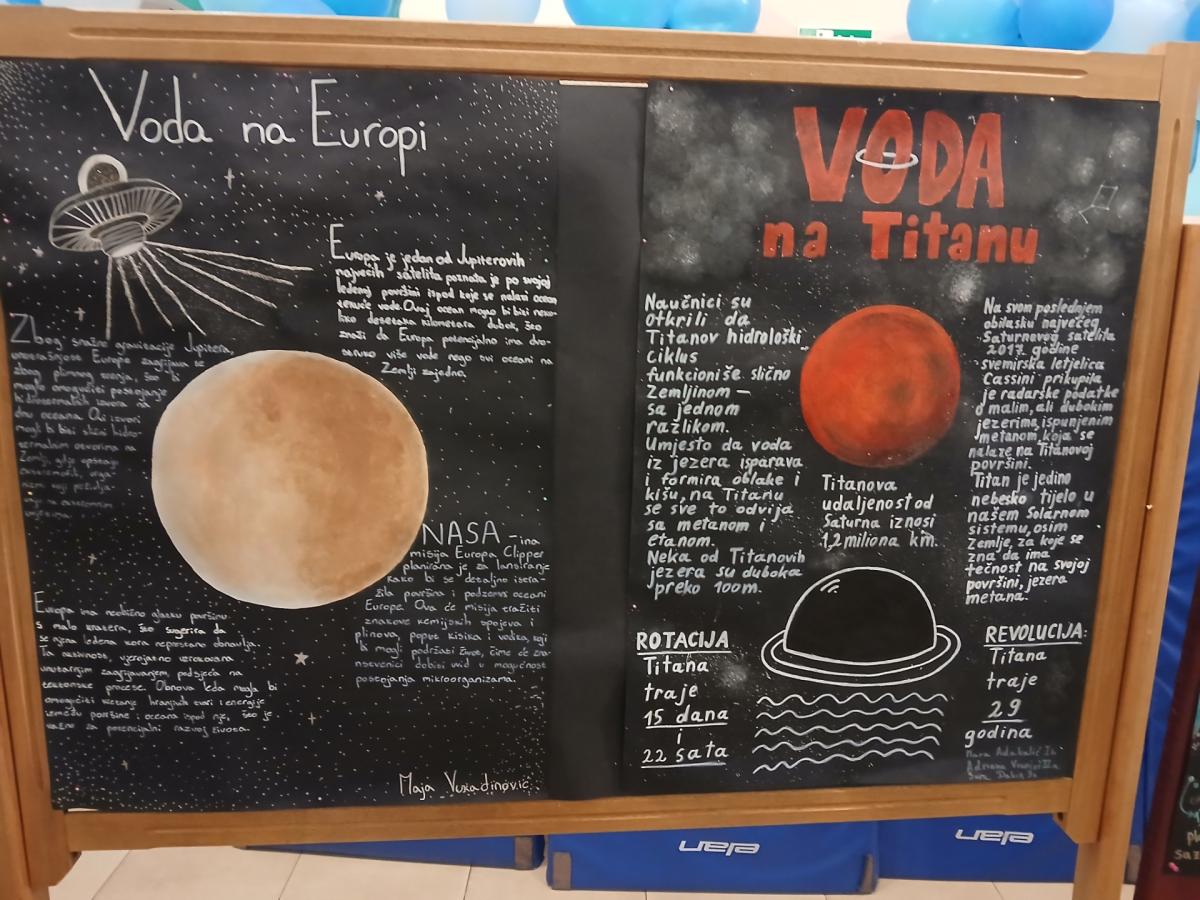 Voda na Europi
Europa je jedan od Jupiterovih
najvećih satelita poznata je po svojoj
ledenoj površini ispod koje se nalazi ocean
tekuće vode. Ovaj ocean mogao bi biti neko-
liko desetaka kilometara dubok, što
znači da Europa potencijalno ima dvo-
više vode nego svi oceani na
Zemlji zajedno.
Zbog snažne gravitacije Jupitera,
unutrašnjost Europe zagrijava se
zbog plimnog što bi
moglo omogućiti postojanje
hidrotermalnih izvora na
dnu oceana. Ovi izvori
mogli bi biti slični hidro-
termalnim otvorima na
Zemlji, gdje opstaju
NASA-ina
misija Europa Clipper
planirana je za lansiranje
kako bi se detaljno istra-
žila površina i podzemni oceani
Europe. Ova će misija tražiti
znakove kemijskih spojeva i
plinova, poput kisika i vodika, koji
bi mogli podržati život, čime će zna-
nstvenici dobiti uvid u mogućnost
postojanja mikroorganizama.
Europa ima neobično glatku površinu
s malo kratera, što sugerira da
se njena ledena kora neprestano obnavlja.
Ta aktivnost, vjerojatno uzrokovana
unutarnjim zagrijavanjem, podsjeća na
tektonske procese. Obnova leda mogla bi
omogućiti kretanje hranjivih tvari i energije
između površine i oceana ispod nje, što je
važno za potencijalni razvoj života.
Maja Vukadinović
VODA
na Titanu
Naučnici su
otkrili da
Titanov hidrološki
ciklus
funkcioniše slično
Zemljinom –
sa jednom
razlikom.
Umjesto da voda
iz jezera isparava
i formira oblake i
kišu, na Titanu
se sve to odvija
sa metanom i
etanom.
Neka od Titanovih
jezera su duboka
preko 100m.
ROTACIJA
Titana
traje
15 dana
i
22 sata
Titanova
udaljenost od
Saturna iznosi
1,2 miliona km.
Na svom poslednjem
obilasku najvećeg
Saturnovog satelita
2017. godine
svemirska letjelica
Cassini prikupila
je radarske podatke
o malim, ali dubokim
jezerima, ispunjenim
metanom, koja se
nalaze na Titanovoj
površini.
Titan je jedino
nebesko tijelo u
našem Solarnom
sistemu, osim
Zemlje, za koje se
zna da ima
tečnost na svojoj
površini, jezera
metana.
REVOLUCIJA:
Titana
traje
29
godina